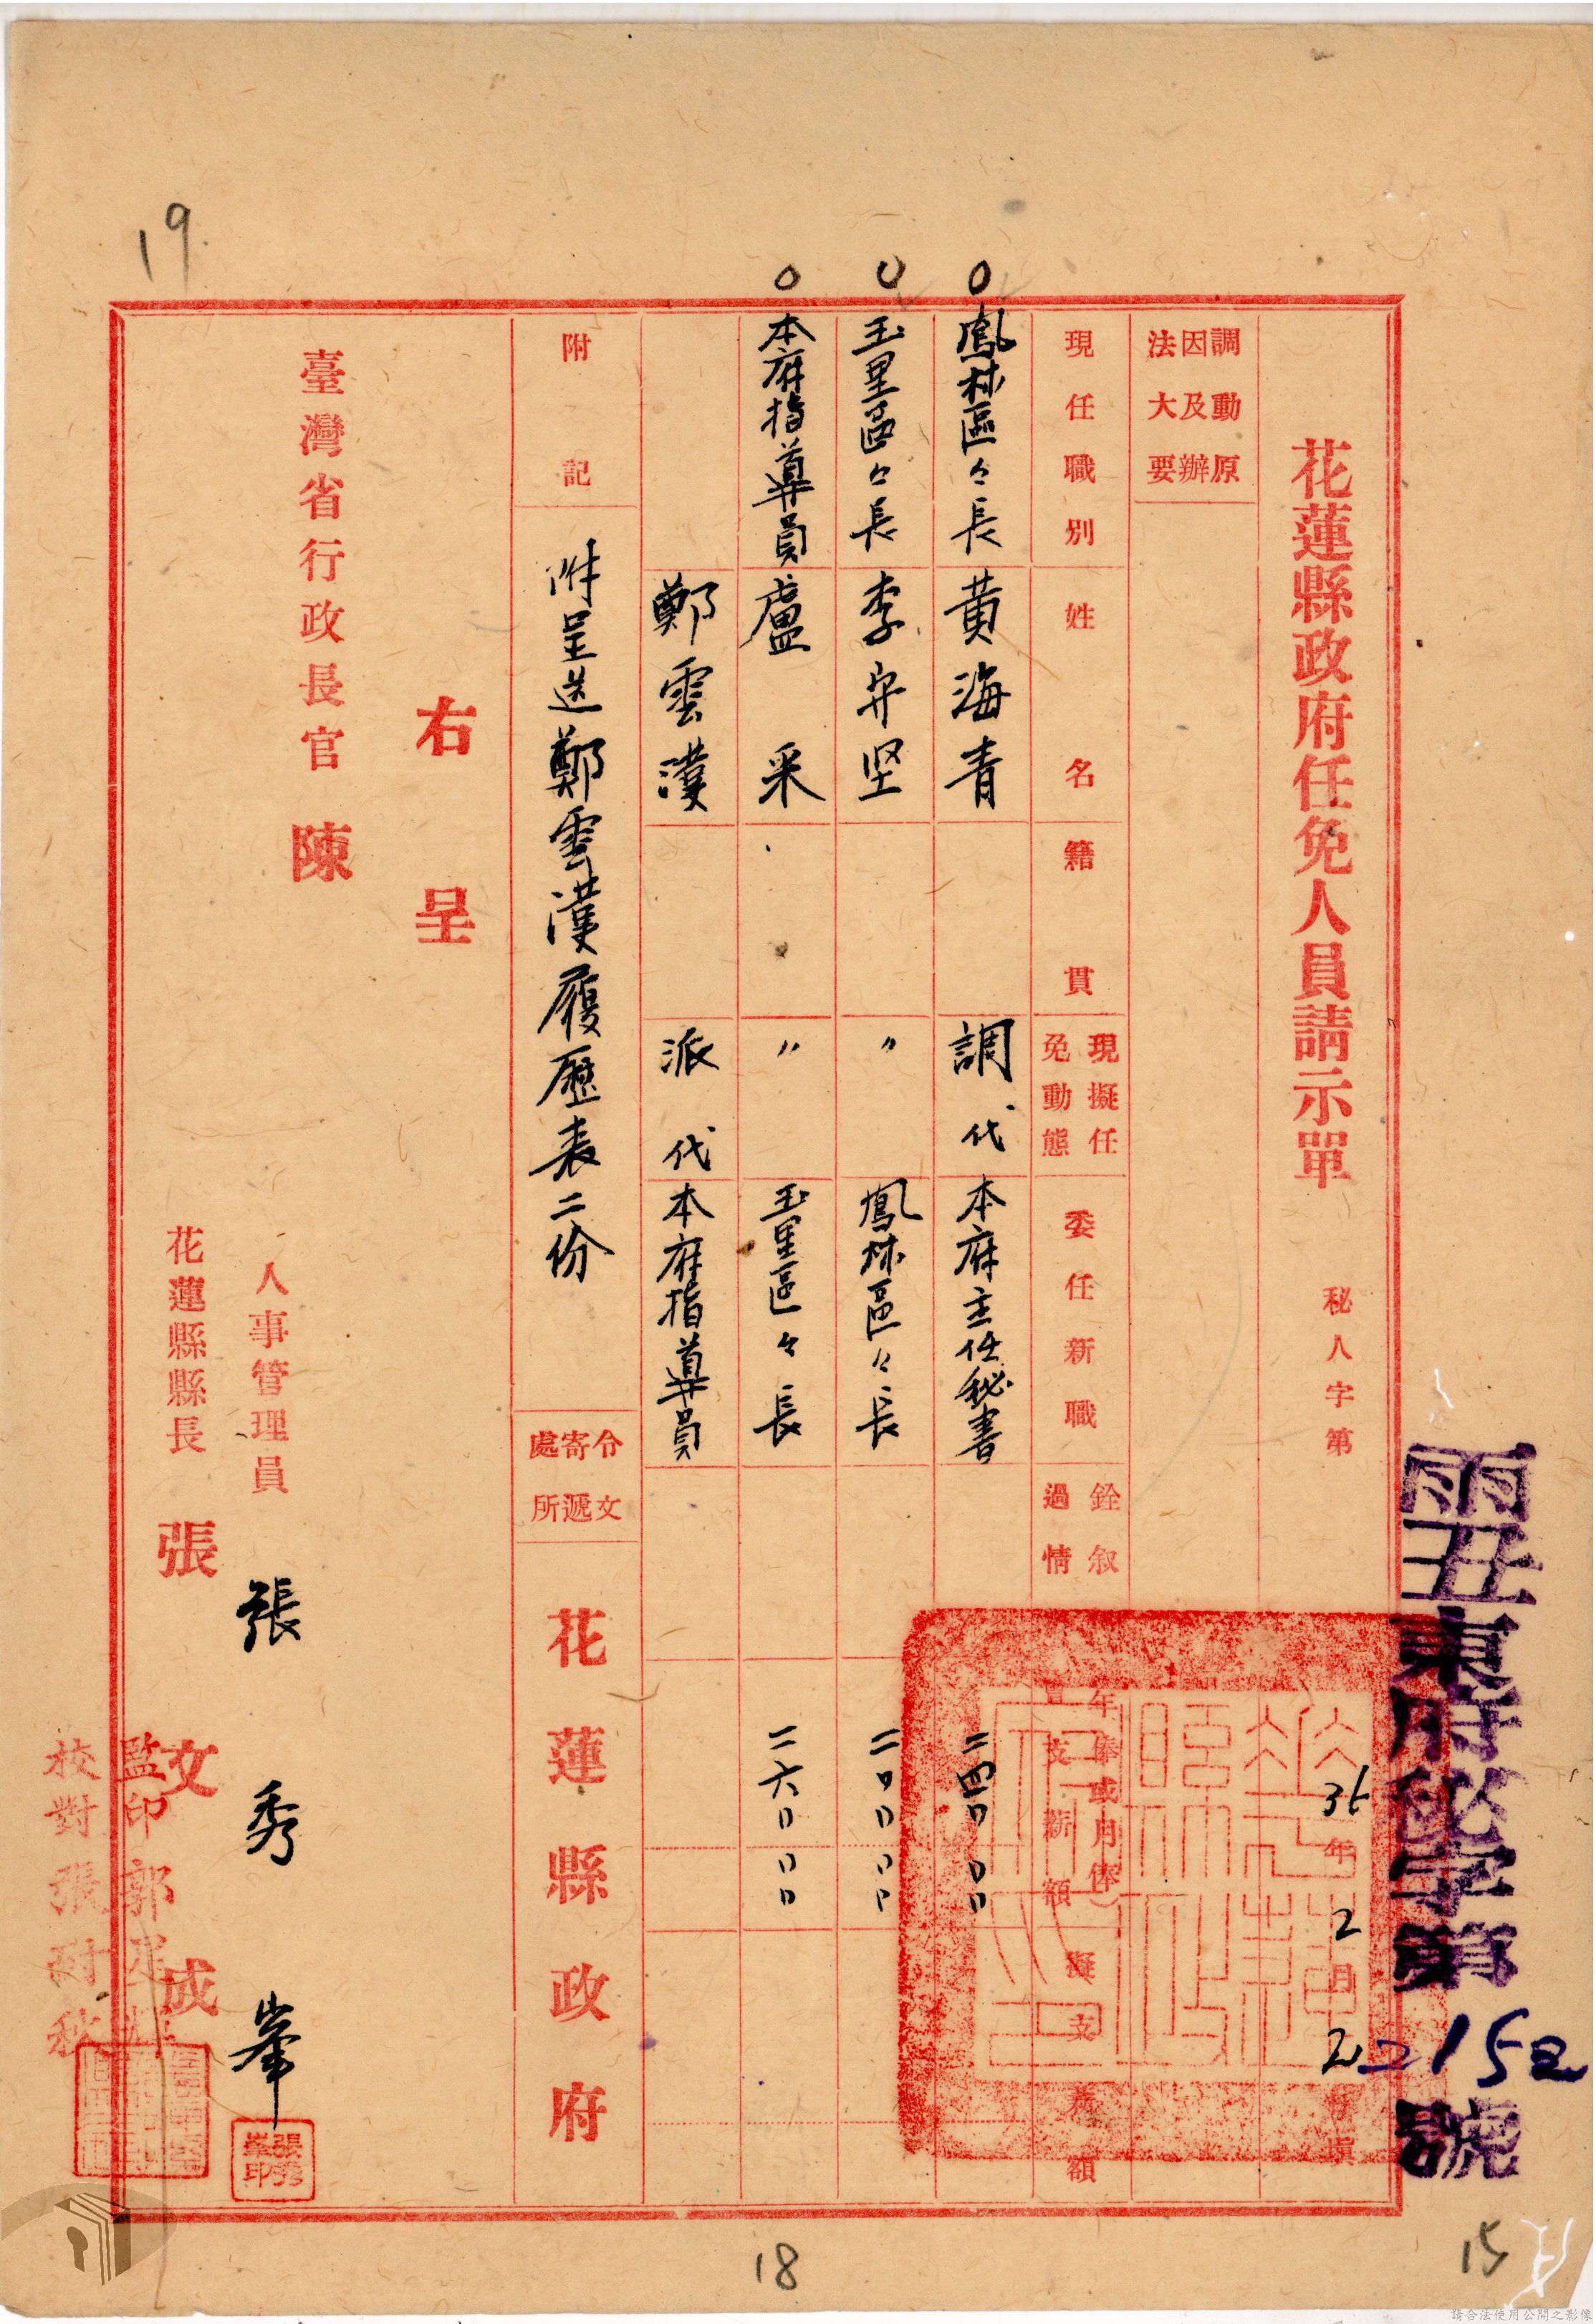 花蓮縣政府任免人員請示單
秘人字第
36年2月2
丑東府秘字第
2152
號
調動原因及辦法大要
現任職別
姓名
籍貫
現擬任免動態
委任新職
銓叙過情
年俸或月俸
支薪額
擬支薪額
鳳林區々長 黃海青 調代 本府主任秘書 二四〇 〇〇
玉里區々長 李守坚 〃 鳳林區々長 二〇〇 〇〇
本府指導員 盧采 〃 玉里區々長 二六〇 〇〇
鄭雲漢 派代 本府指導員
附記
附呈送鄭雲漢履歷表二份
令文寄遞處所
花蓮縣政府
右呈
臺灣省行政長官 陳
人事管理員 張秀峯
張秀峯印
花蓮縣縣長 張文成
監印 郭
校對 張
19.
18
15
請合法使用公開之影像